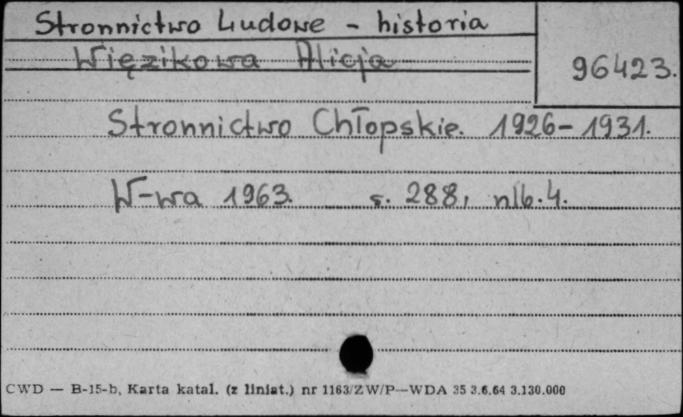 Stronnictwo Ludowe - historia
Więzikowa Alicja
96423.
Stronnictwo Chłopskie. 1926-1931.
W-wa 1963. s. 288, nlb. 4.
CWD — B-15-b, Karta katal. (z liniat.) nr 1163/ZW/P—WDA 35 3.6.64 3.130.000